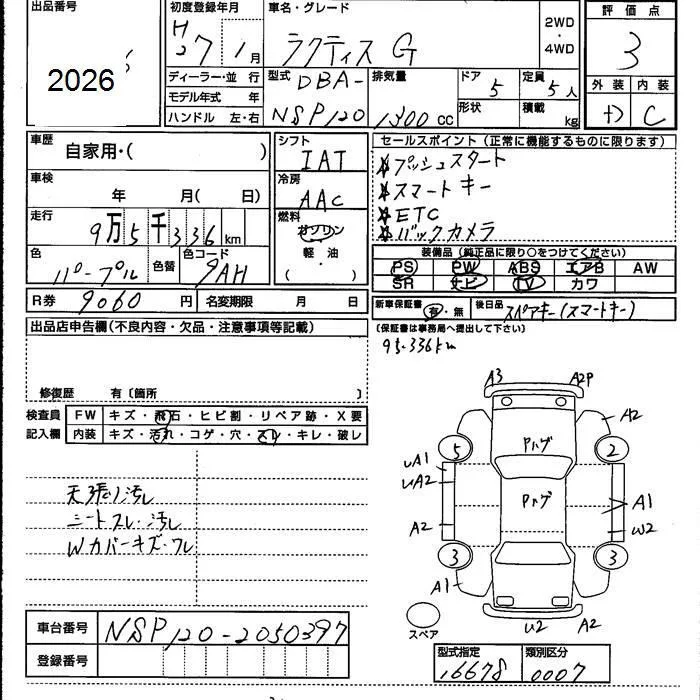 出品番号
2026
初度登録年月
H27年1月
車名・グレード
ラクティス G
2WD
・
4WD
評価点
3
ディーラー・並 行
モデル年式 年
ハンドル 左・右
型式
DBA-
NSP120
排気量
1300cc
ドア
5
定員
5人
形状
積載
kg
外装
内装
C
車歴
自家用・( )
車検
年 月( 日)
走行
9万5千336km
色
パープル
色替
色コード
9AH
シフト
IAT
冷房
AAC
燃料
ガソリン
軽 油
( ・ )
セールスポイント(正常に機能するものに限ります)
プッシュスタート
スマートキー
ETC
バックカメラ
装備品(純正品に限り○をつけてください)
PS PW ABS エアB AW
SR ナビ TV カワ
R券 9060円
名変期限 月 日
新車保証書 有・無
後日品 スペアキー(スマートキー)
(保証書は事務局へ提出して下さい)
95.336km
出品店申告欄(不良内容・欠品・注意事項等記載)
修復歴 有〔箇所 〕
検査員
記入欄
FW キズ・飛石・ヒビ割・リペア跡・X要
内装 キズ・汚れ・コゲ・穴・スレ・キレ・破レ
天張リ汚レ
シートスレ・汚レ
Wカバーキズ・ワレ
A3
A2P
A2
Pハゲ
5
2
uA1
uA2
Pハゲ
A1
A2
W2
3
3
A1
スペア
U2
A2
車台番号 NSP120-2050397
登録番号
型式指定
16678
類別区分
0007